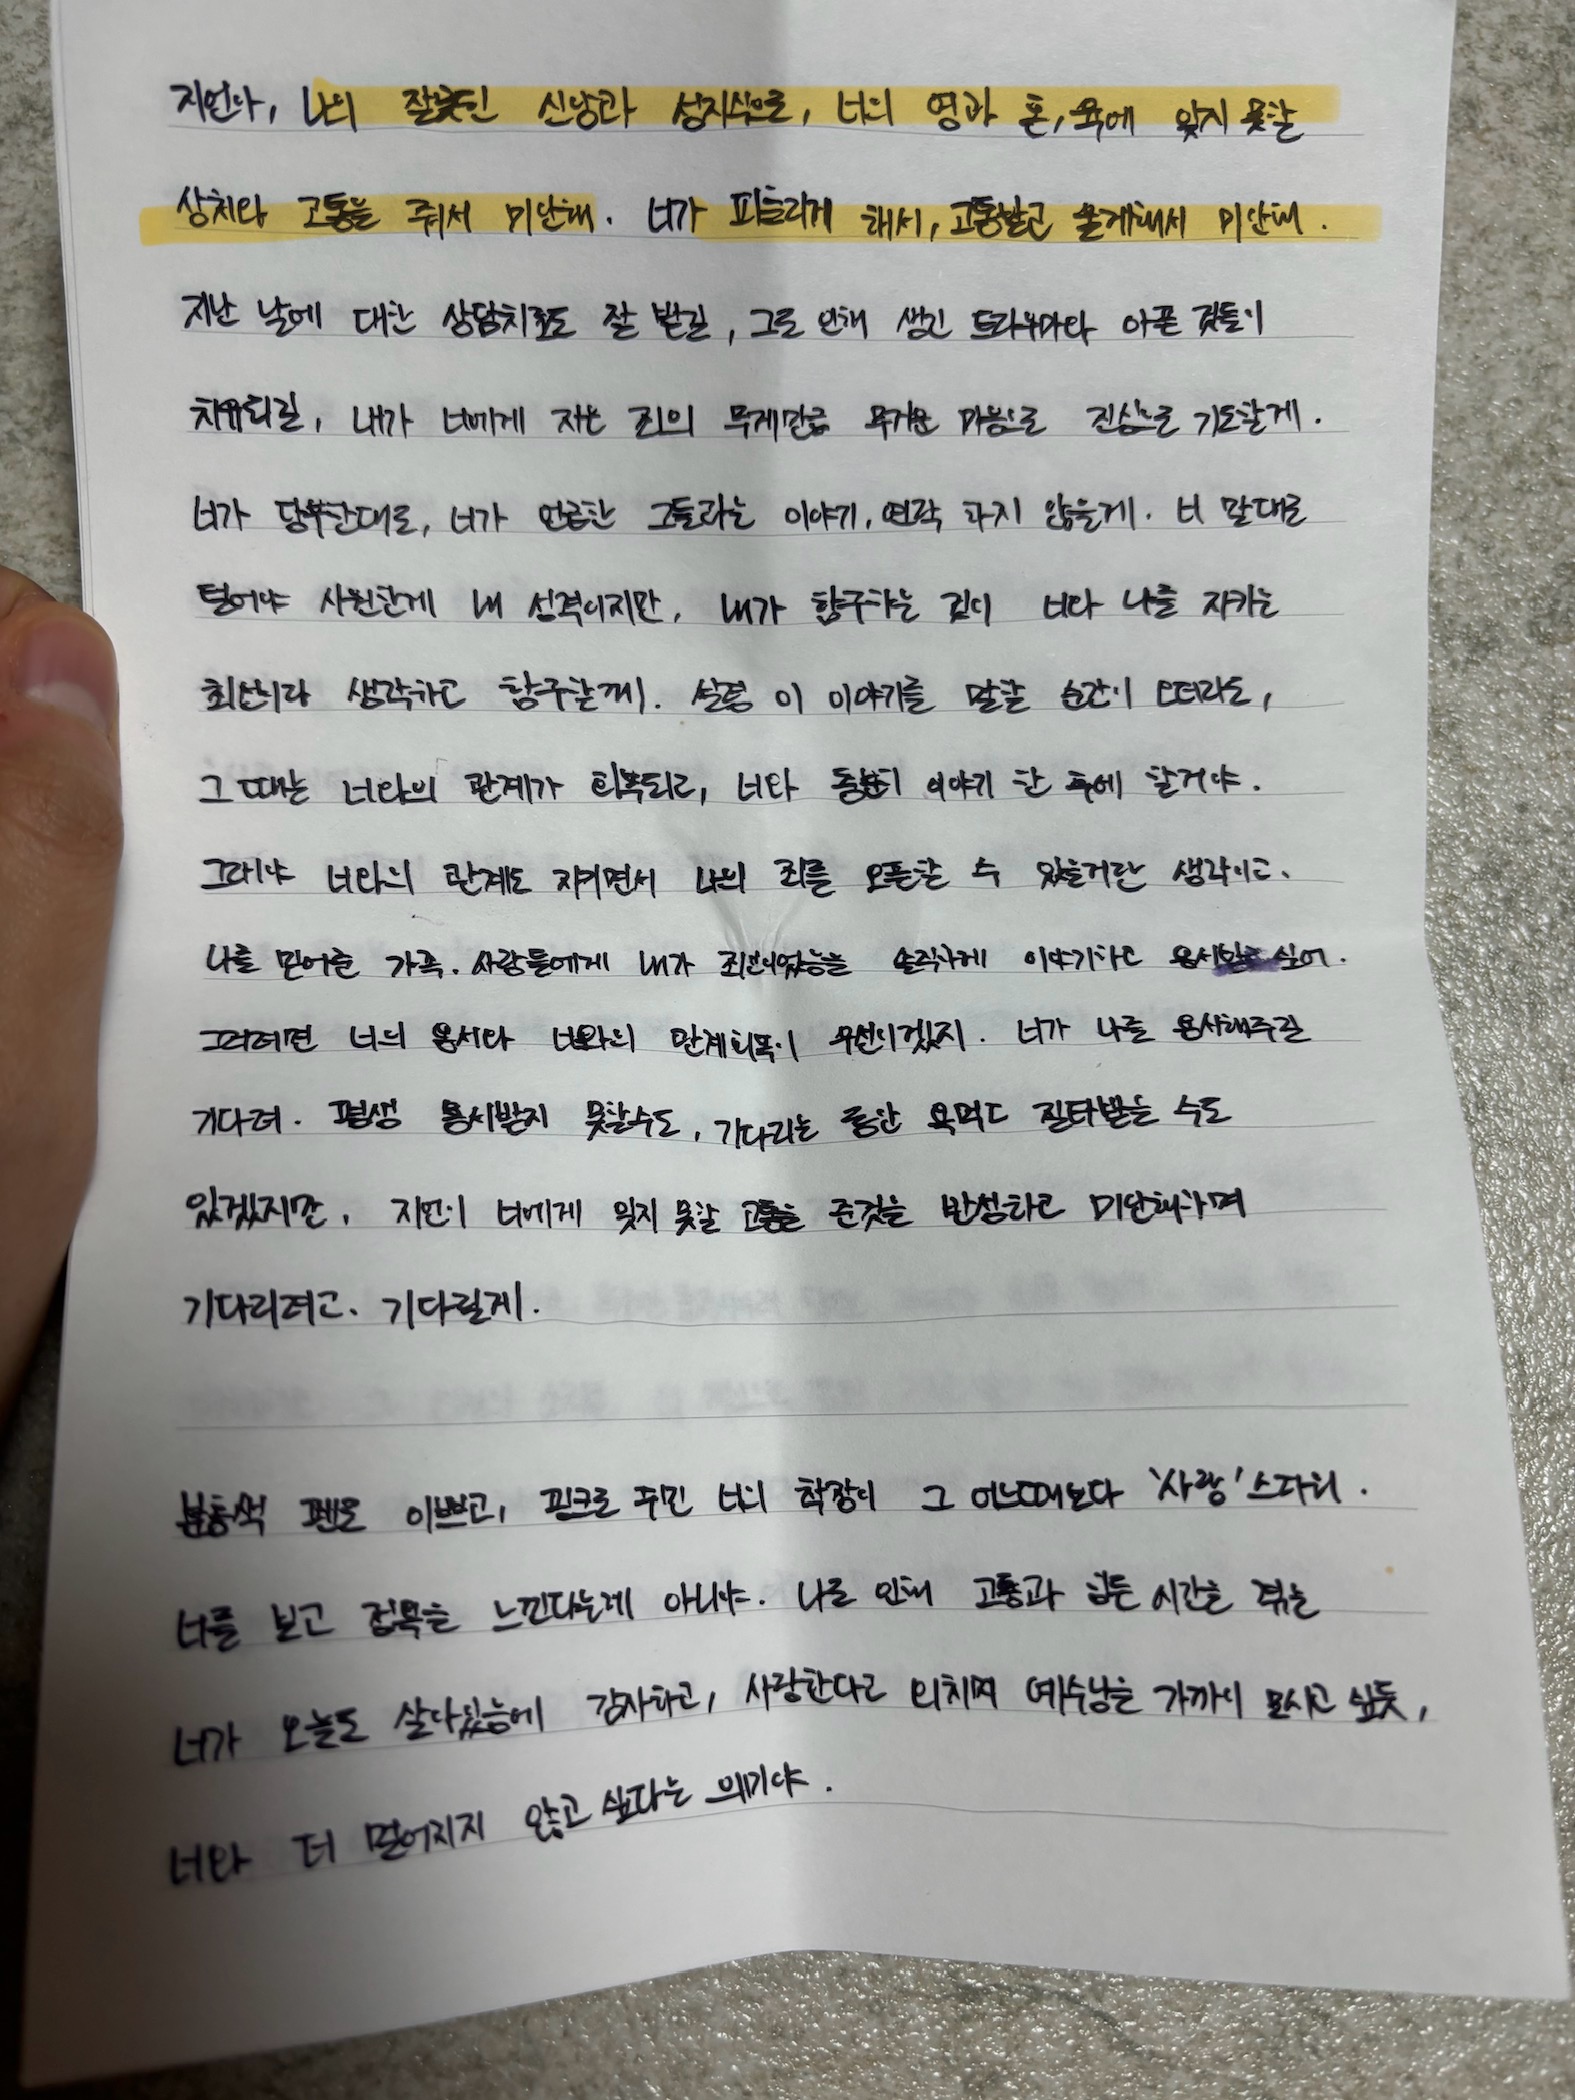 지연아, 나의 잘못된 신앙과 성지식으로, 너의 영과 혼, 육에 잊지 못할
상처와 고통을 줘서 미안해. 너가 피흘리게 해서, 고통받고 울게해서 미안해.
지난 날에 대한 상담치료도 잘 받길, 그로 인해 생긴 트라우마와 아픈 것들이
치유되길, 내가 너에게 지은 죄의 무게만큼 무거운 마음으로 진심으로 기도할게.
너가 당부한대로, 너가 언급한 그들과는 이야기, 연락 하지 않을게. 너 말대로
털어야 시원한게 내 성격이지만, 내가 함구하는 것이 너와 나를 지키는
최선이라 생각하고 함구할게. 설령 이 이야기를 말할 순간이 오더라도,
그 때는 너와의 관계가 회복되고, 너와 충분히 이야기 한 후에 할거야.
그래야 너와의 관계도 지키면서 나의 죄를 오픈할 수 있을거란 생각이고.
나를 믿어준 가족, 사람들에게 내가 죄인이었음을 솔직하게 이야기하고 용서받고 싶어.
그러려면 너의 용서와 너와의 관계회복이 우선이겠지. 너가 나를 용서해주길
기다려. 평생 용서받지 못할수도, 기다리는 동안 욕먹고 질타받을 수도
있겠지만, 지연이 너에게 잊지 못할 고통을 준것을 반성하고 미안해하며
기다리려고. 기다릴게.
분홍색 펜도 이쁘고, 핑크로 꾸민 너의 착장이 그 어느때보다 '사랑'스러워.
너를 보고 정욕을 느낀다는게 아니야. 나로 인해 고통과 힘든 시간을 겪는
너가 오늘도 살아있음에 감사하고, 사랑한다고 외치며 예수님을 가까이 모시고 싶듯,
너와 더 멀어지지 않고 싶다는 얘기야.